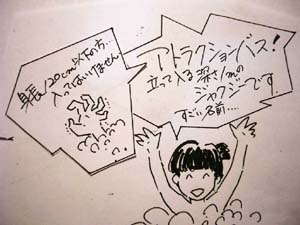 身長120cm以下の方…
入ってはいけません
アトラクションバス!
立って入る深さ1mの
ジャクジーです
すごい名前….